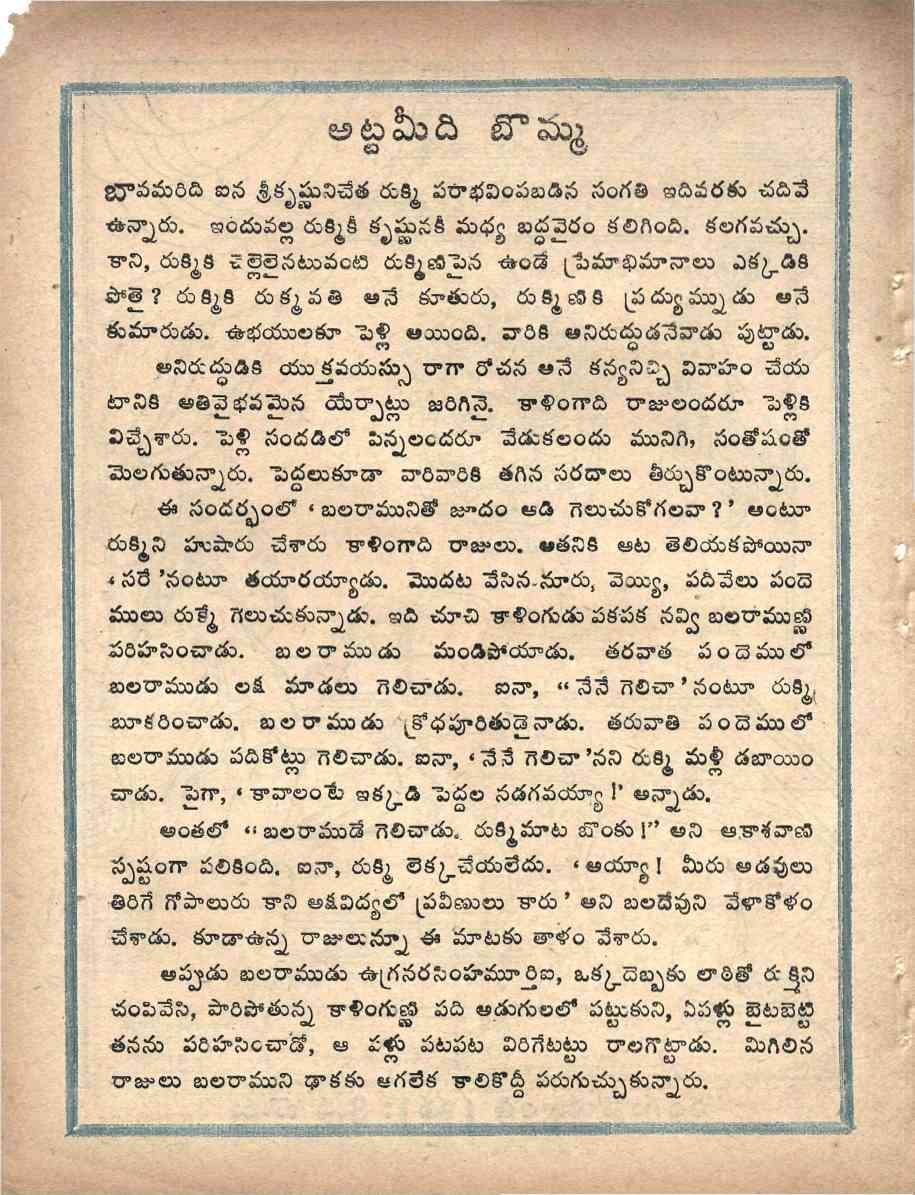 అట్టమీది బొమ్మ
బావమరిది ఐన శ్రీకృష్ణునిచేత రుక్మి పరాభవింపబడిన సంగతి ఇదివరకు చదివే
ఉన్నారు. ఇందువల్ల రుక్మికీ కృష్ణునకీ మధ్య బద్ధవైరం కలిగింది. కలగవచ్చు.
కాని, రుక్మికి చెల్లెలైనటువంటి రుక్మిణిపైన ఉండే ప్రేమాభిమానాలు ఎక్కడికి
పోతై? రుక్మికి రుక్మవతి అనే కూతురు, రుక్మిణికి ప్రద్యుమ్నుడు అనే
కుమారుడు. ఉభయులకూ పెళ్లి అయింది. వారికి అనిరుద్ధుడనేవాడు పుట్టాడు.
అనిరుద్ధుడికి యుక్తవయస్సు రాగా రోచన అనే కన్యనిచ్చి వివాహం చేయ
టానికి అతివైభవమైన యేర్పాట్లు జరిగినై. కాళింగాది రాజులందరూ పెళ్లికి
విచ్చేశారు. పెళ్లి సందడిలో పిన్నలందరూ వేడుకలందు మునిగి, సంతోషంతో
మెలగుతున్నారు. పెద్దలుకూడా వారివారికి తగిన సరదాలు తీర్చుకొంటున్నారు.
ఈ సందర్భంలో ‘ బలరామునితో జూదం ఆడి గెలుచుకోగలవా ?’ అంటూ
రుక్మిని హుషారు చేశారు కాళింగాది రాజులు. అతనికి ఆట తెలియకపోయినా
‘ సరే ’నంటూ తయారయ్యాడు. మొదట వేసిన నూరు, వెయ్యి, పదివేలు పందె
ములు రుక్మే గెలుచుకున్నాడు. ఇది చూచి కాళింగుడు పకపక నవ్వి బలరాముణ్ణి
పరిహసించాడు. బలరాముడు మండిపోయాడు. తరవాత పందెములో
బలరాముడు లక్ష మాడలు గెలిచాడు. ఐనా, “ నేనే గెలిచా ’నంటూ రుక్మి
బూకరించాడు. బలరాముడు క్రోధపూరితుడైనాడు. తరువాతి పందెములో
బలరాముడు పదికోట్లు గెలిచాడు. ఐనా, ‘ నేనే గెలిచా ’నని రుక్మి మళ్లీ డబాయిం
చాడు. పైగా, ‘ కావాలంటే ఇక్కడి పెద్దల నడగవయ్యా !’ అన్నాడు.
అంతలో “ బలరాముడే గెలిచాడు. రుక్మిమాట బొంకు !” అని ఆకాశవాణి
స్పష్టంగా పలికింది. ఐనా, రుక్మి లెక్కచేయలేదు. ‘ అయ్యా ! మీరు అడవులు
తిరిగే గోపాలురు కాని అక్షవిద్యలో ప్రవీణులు కారు ’ అని బలదేవుని వేళాకోళం
చేశాడు. కూడాఉన్న రాజులున్నూ ఈ మాటకు తాళం వేశారు.
అప్పుడు బలరాముడు ఉగ్రనరసింహమూర్తిఐ, ఒక్కదెబ్బకు లాఠితో రుక్మిని
చంపివేసి, పారిపోతున్న కాళింగుణ్ణి పది అడుగులలో పట్టుకుని, ఏపళ్లు బైటబెట్టి
తనను పరిహసించాడో, ఆ పళ్లు పటపట విరిగేటట్టు రాలగొట్టాడు. మిగిలిన
రాజులు బలరాముని ఢాకకు ఆగలేక కాలికొద్దీ పరుగుచ్చుకున్నారు.